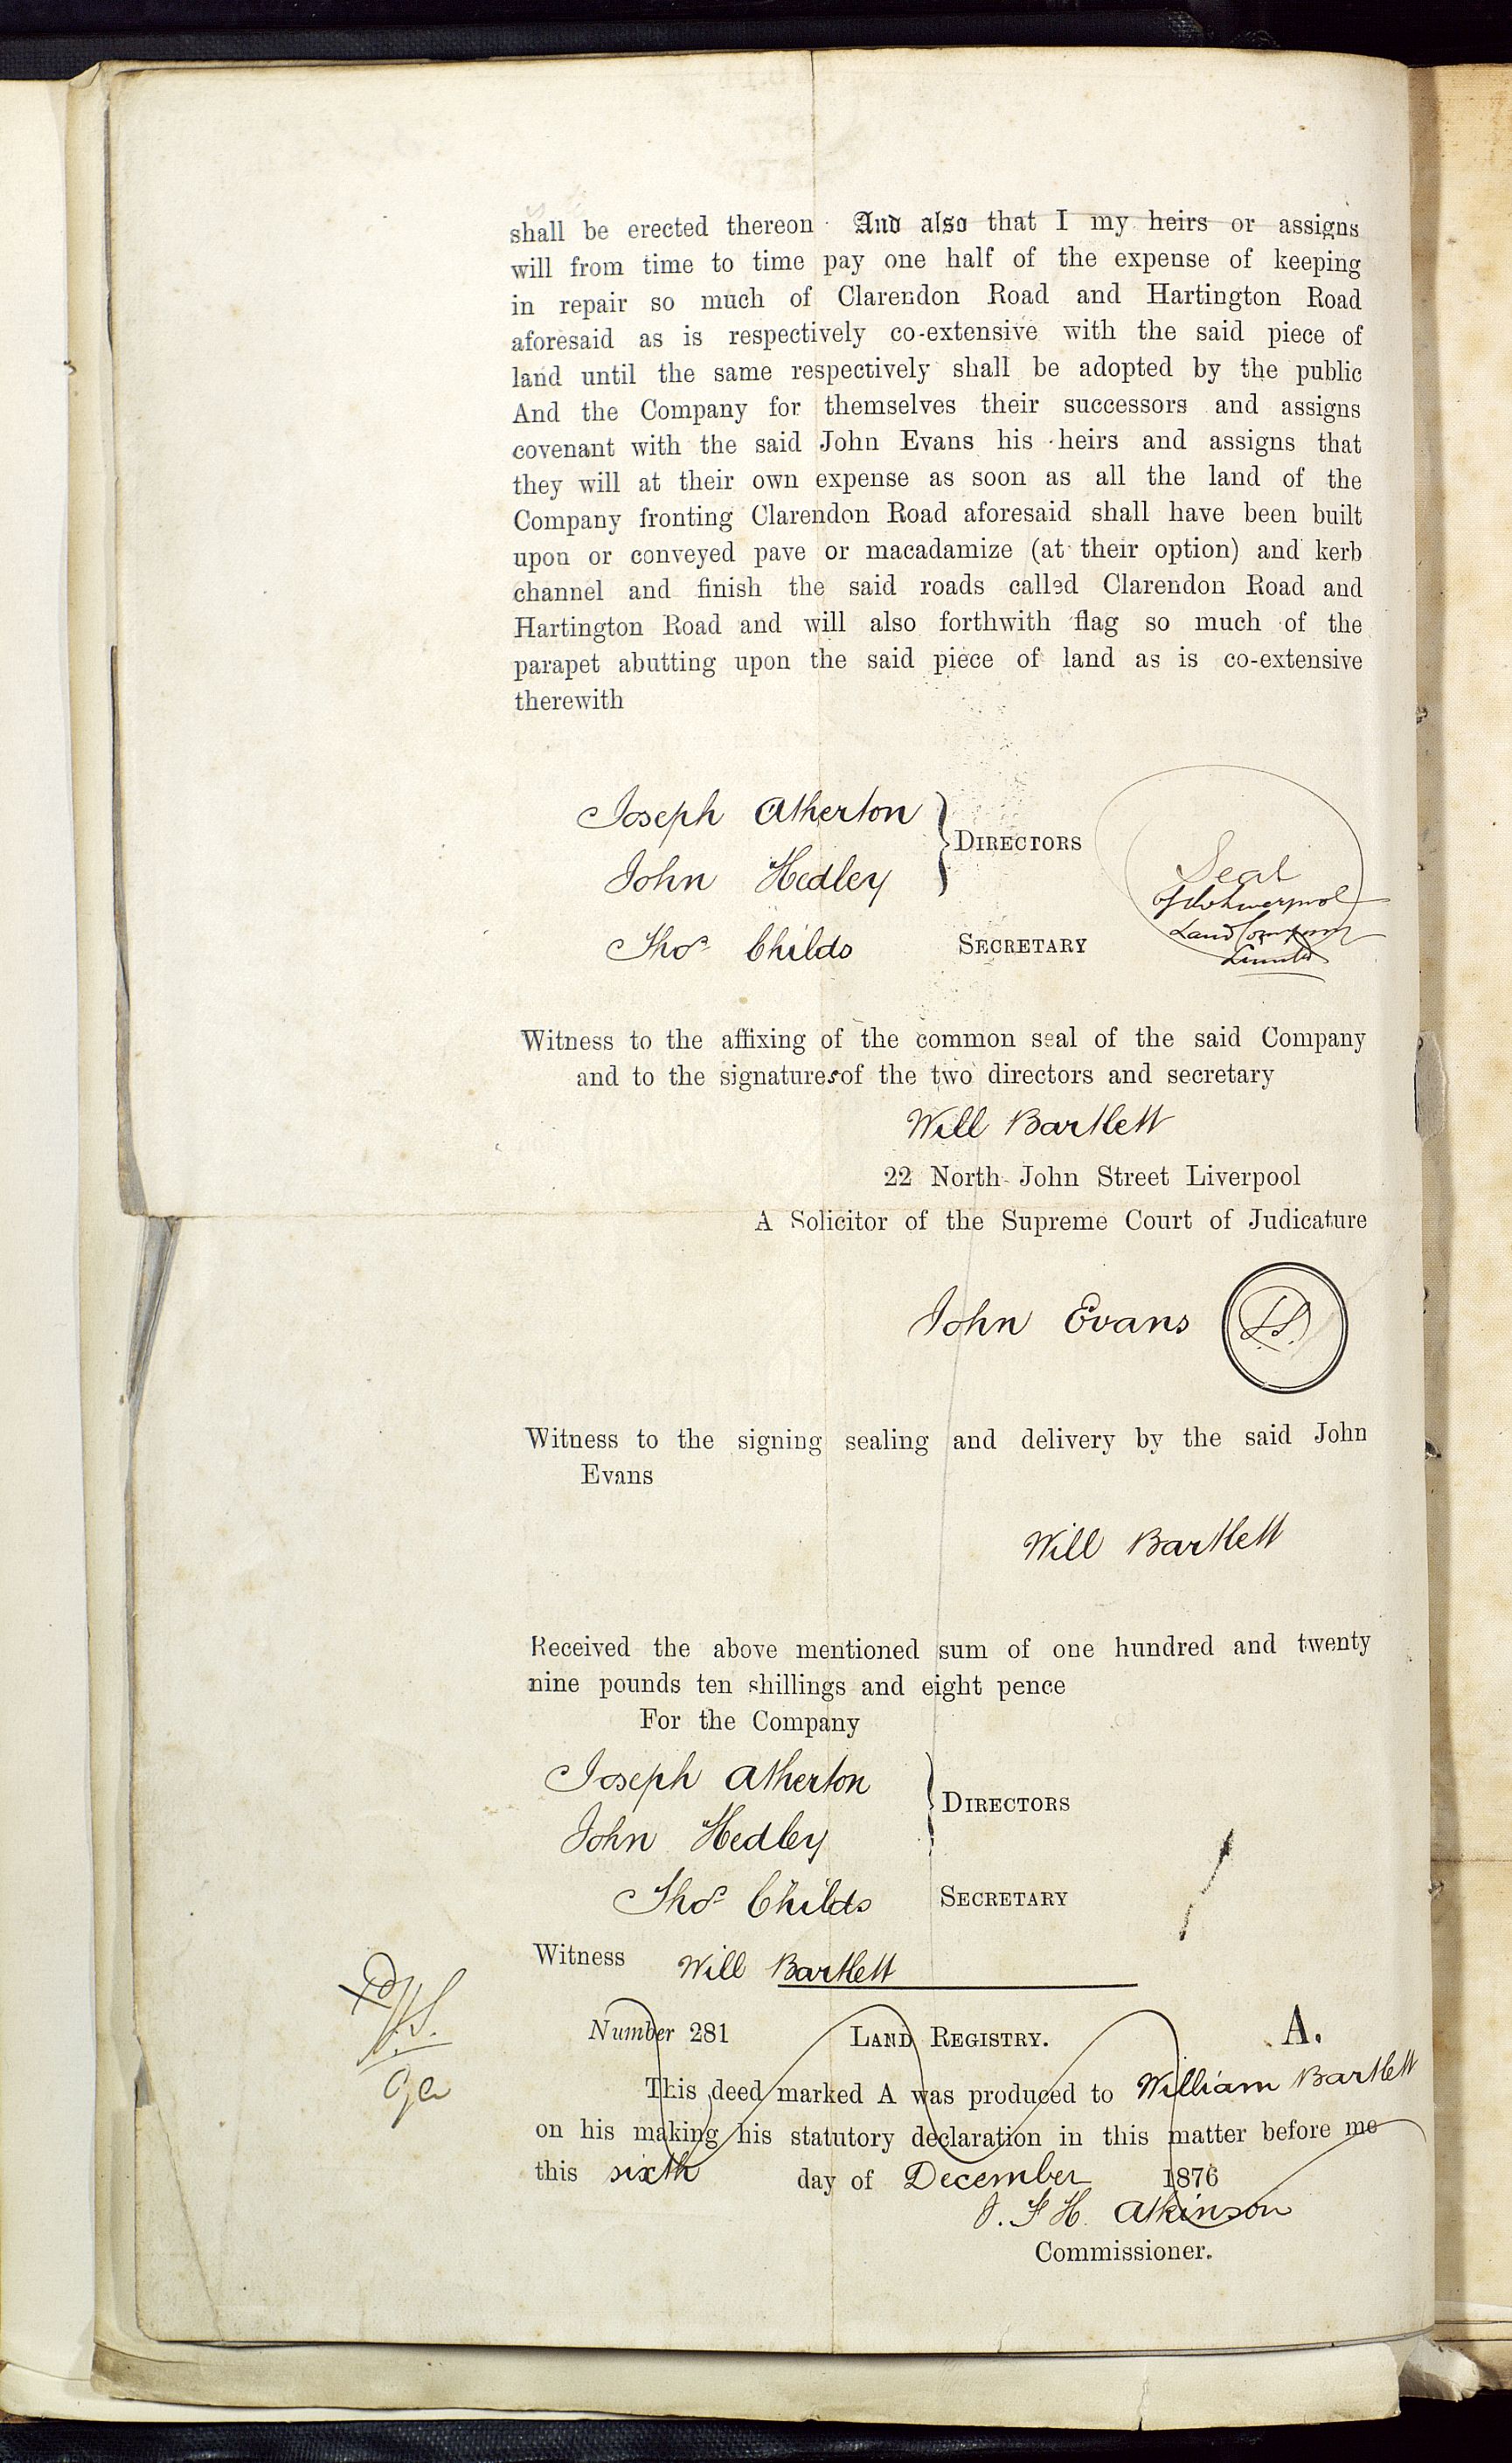 shall be erected thereon And also that I my heirs or assigns
will from time to time pay one half of the expense of keeping
in repair so much of Clarendon Road and Hartington Road
aforesaid as is respectively co-extensive with the said piece of
land until the same respectively shall be adopted by the public
And the Company for themselves their successors and assigns
covenant with the said John Evans his heirs and assigns that
they will at their own expense as soon as all the land of the
Company fronting Clarendon Road aforesaid shall have been built
upon or conveyed pave or macadamize (at their option) and kerb
channel and finish the said roads called Clarendon Road and
Hartington Road and will also forthwith flag so much of the
parapet abutting upon the said piece of land as is co-extensive
therewith
Joseph Atherton
DIRECTORS
John Hedley
Thos Childs SECRETARY
Seal
of the Liverpool
Land Company
Limited
Witness to the affixing of the common seal of the said Company
and to the signatures of the two directors and secretary
Will Bartlett
22 North John Street Liverpool
A Solicitor of the Supreme Court of Judicature
John Evans L.S.
Witness to the signing sealing and delivery by the said John
Evans
Will Bartlett
Received the above mentioned sum of one hundred and twenty
nine pounds ten shillings and eight pence
For the Company
Joseph Atherton
DIRECTORS
John Hedley
Thos Childs SECRETARY
Witness Will Bartlett
Number 281 LAND REGISTRY. A.
This deed marked A was produced to William Bartlett
on his making his statutory declaration in this matter before me
this sixth day of December 1876
J. F H. Atkinson
Commissioner.